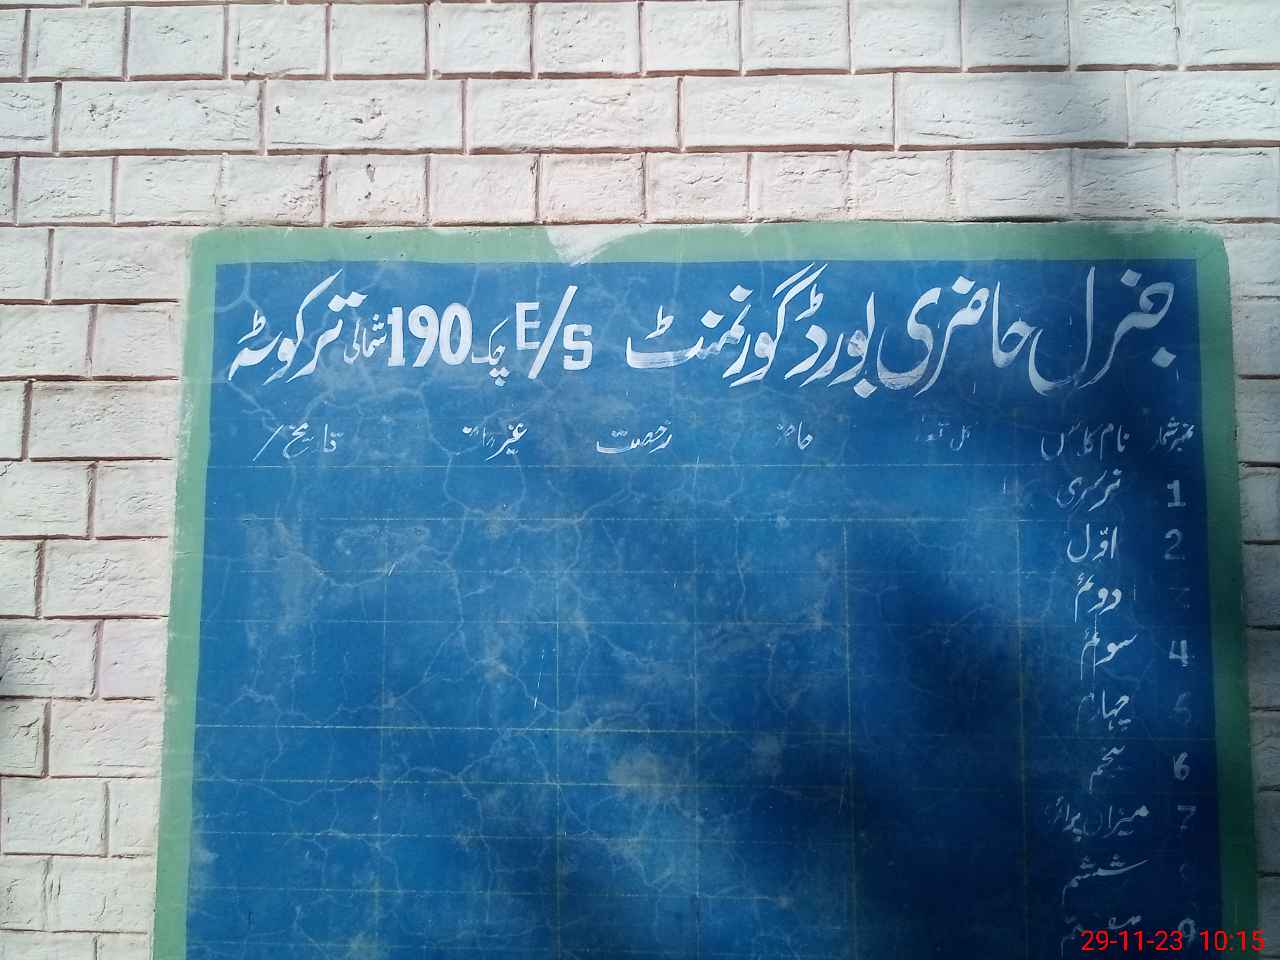 جنرل حاضری بورڈ گورنمنٹ E/S چک 190 شمالی ترکوٹہ
نمبر شمار نام کلاس حاضر رخصت غیر حاضر تاریخ /
1 نرسری
2 اوّل
دوئم
4 سوئم
5 چہارم
6 پنجم
7 میزان پرائمری
ششم
9 ہفتم
29-11-23 10:15